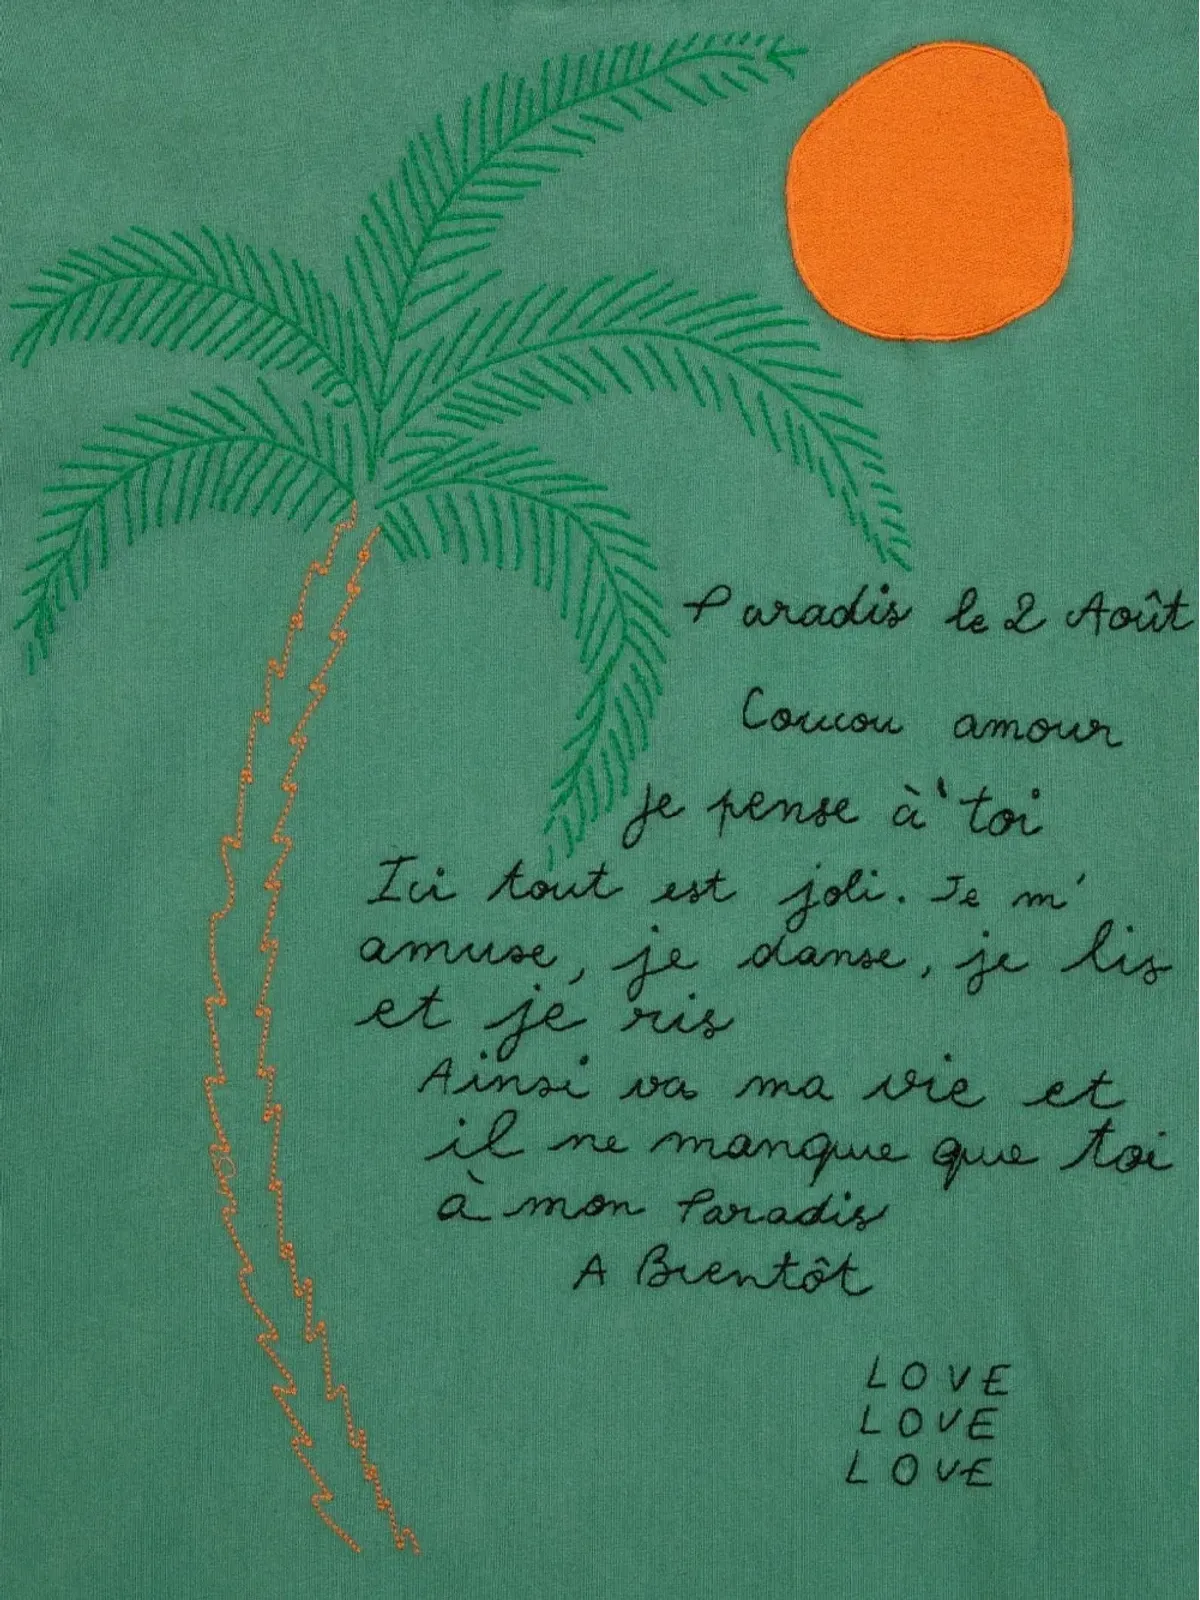 Paradis le 2 Août
Coucou amour
je pense à' toi
Ici tout est joli. Je m'
amuse, je danse, je lis
et je ris
Ainsi va ma vie et
il ne manque que toi
à mon Paradis
A Bientôt
LOVE
LOVE
LOVE